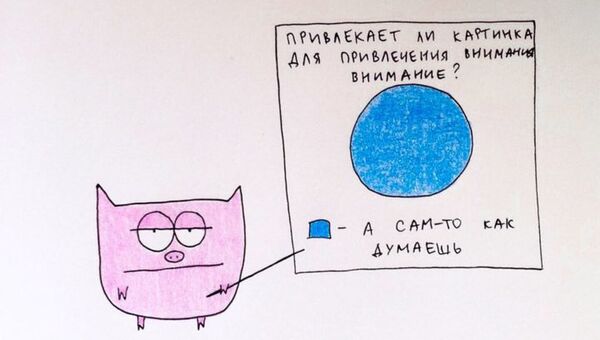 ПРИВЛЕКАЕТ ЛИ КАРТИНКА
ДЛЯ ПРИВЛЕЧЕНИЯ ВНИМАНИЯ
ВНИМАНИЕ?
- А САМ-ТО КАК
ДУМАЕШЬ